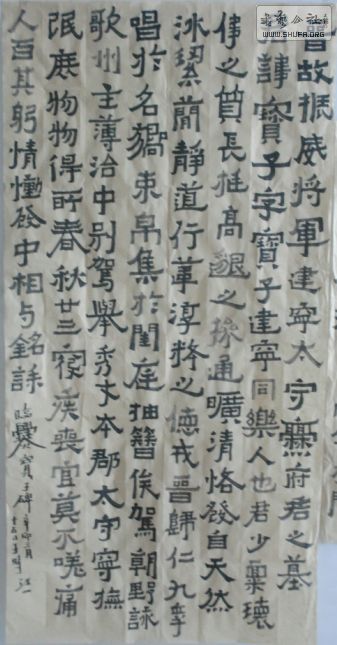 晉故振威將軍建寧太守爨府君之墓
君諱寶子字寶子建寧同樂人也君少稟瓌
偉之質長挺高邈之操通曠清恪發自天然
冰絜簡靜道行葦淳粹之德戎晉歸仁九皋
唱於名嚮束帛集於閨庭抽簪俟駕朝野詠
歌州主薄治中别駕舉秀才本郡太守寧撫
氓庶物物得所春秋廿三寑疾喪官莫不嗟痛
人百其躬情慟發中相与銘誄
臨爨寶子碑辛卯
WWW.SHUFA.ORG